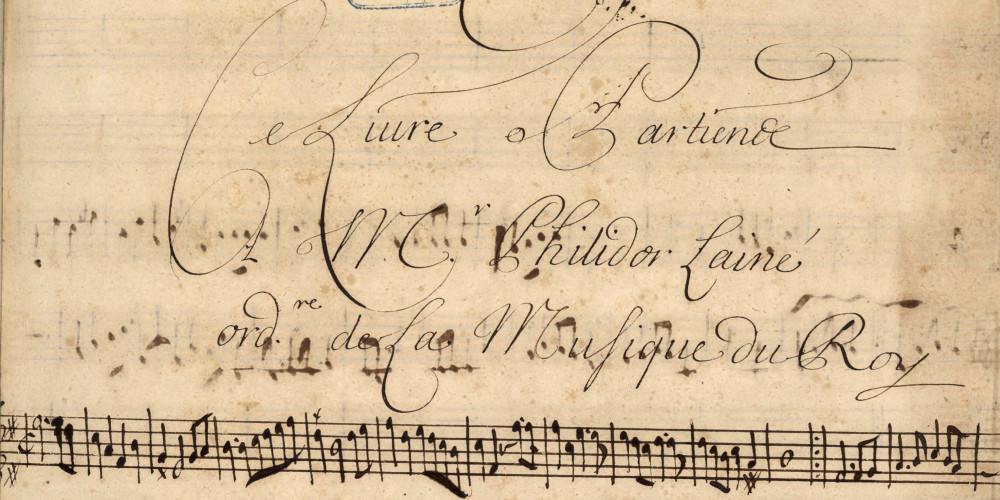 Ce Liure apartient
A M.r Philidor Lainé
ord.re de La Musique du Roy